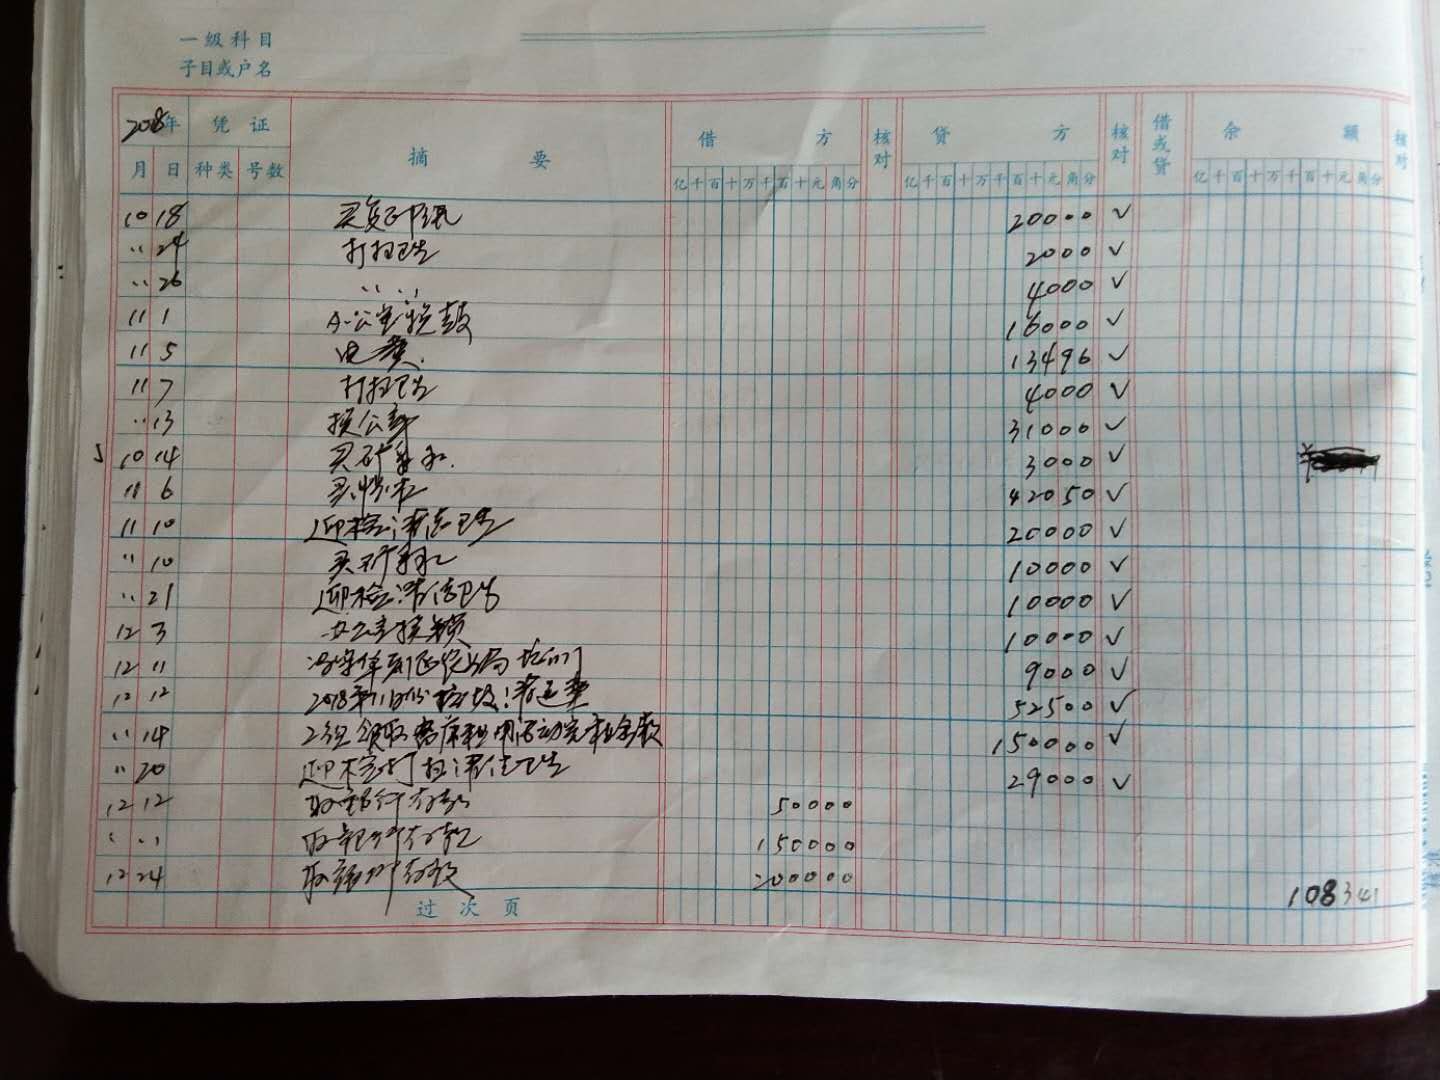 一级科目
子目或户名
2018年 凭证 摘要 借方 核对 贷方 核对 借或贷 余额 核对
月 日 种类 号数 亿千百十万千百十元角分 亿千百十万千百十元角分 亿千百十万千百十元角分
10 18 买复印纸 20000 ✓
〃 24 打扫卫生 2000 ✓
〃 26 〃 〃 4000 ✓
11 1 16000 ✓
11 5 电费. 13496 ✓
11 7 打扫卫生 4000 ✓
〃 13 31000 ✓
10 14 买矿泉水. 3000 ✓
11 6 42050 ✓
11 10 迎检清洁卫生 20000 ✓
〃 10 买矿泉水 10000 ✓
〃 21 迎检清洁卫生 10000 ✓
12 3 办公室换锁 10000 ✓
12 11 9000 ✓
12 12 2018年11月份垃圾清运费 52500 ✓
〃 14 2组领取 租用活动室租金款 150000 ✓
〃 20 迎检打扫清洁卫生 29000 ✓
12 12 取银行存款 50000
〃 〃 取银行存款 150000
12 24 取银行存款 200000
过次页 108341